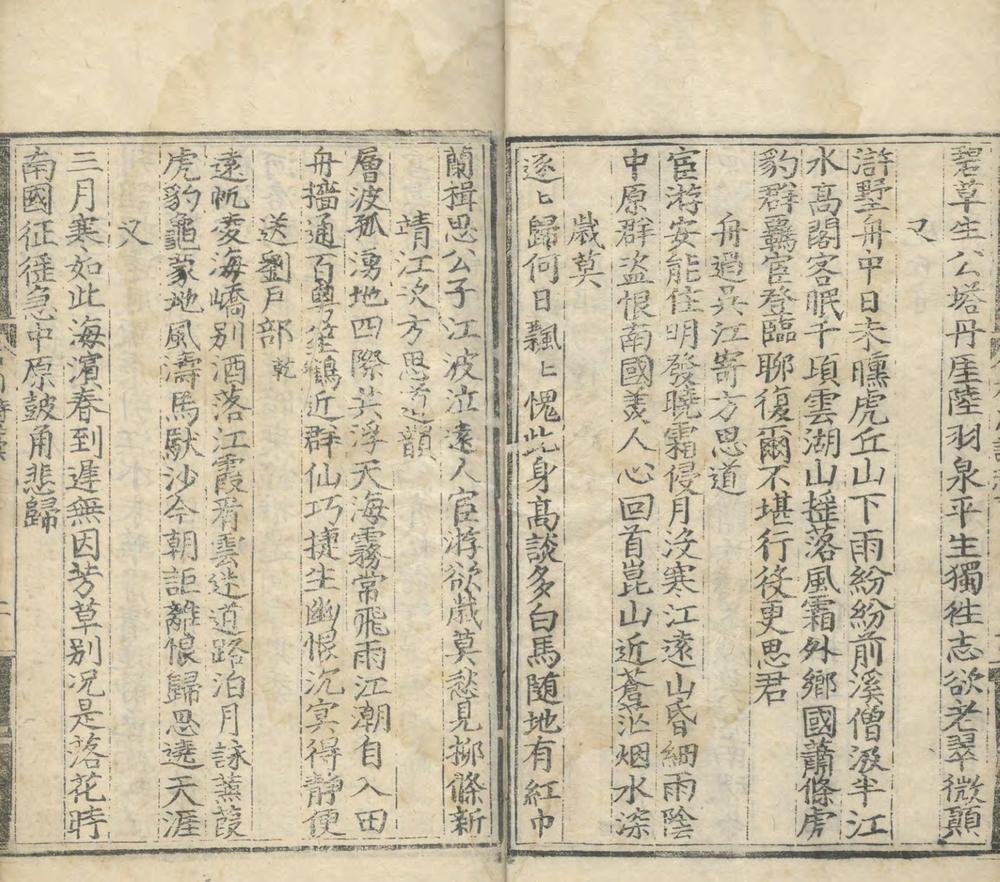 碧草生公塔丹崖陸羽泉平生獨往志欲老翠微顛
又
滸墅舟中日未曛虎丘山下雨紛紛前溪僧汲半江
水高閣客眠千頃雲湖山揺落風霜外鄉國蕭條虎
豹群羈宦登臨聊復爾不堪行後更思君
舟過吳江寄方思道
宦游安能住明發曉霜侵月沒寒江遠山昏細雨陰
中原群盗恨南國美人心回首崑山近蒼茫烟水深
歲莫
逐〻歸何日飄〻愧此身高談多白馬随地有紅巾
蘭楫思公子江波泣遠人宦游欲歲莫愁見柳條新
靖江次方思道韻
層波孤湧地四際共浮天海霧常飛雨江潮自入田
舟檣通百粤笙鶴近群仙巧捷生幽恨沉冥得静便
送劉戶部乾
遠帆夌海嶠别酒落江霞看雲迷道路泊月詠蒹葭
虎豹龜蒙地風濤馬馱沙今朝詎離恨歸思遶天涯
又
三月寒如此海濱春到遲無因芳草别况是落花時
南國征徭急中原鼓角悲歸